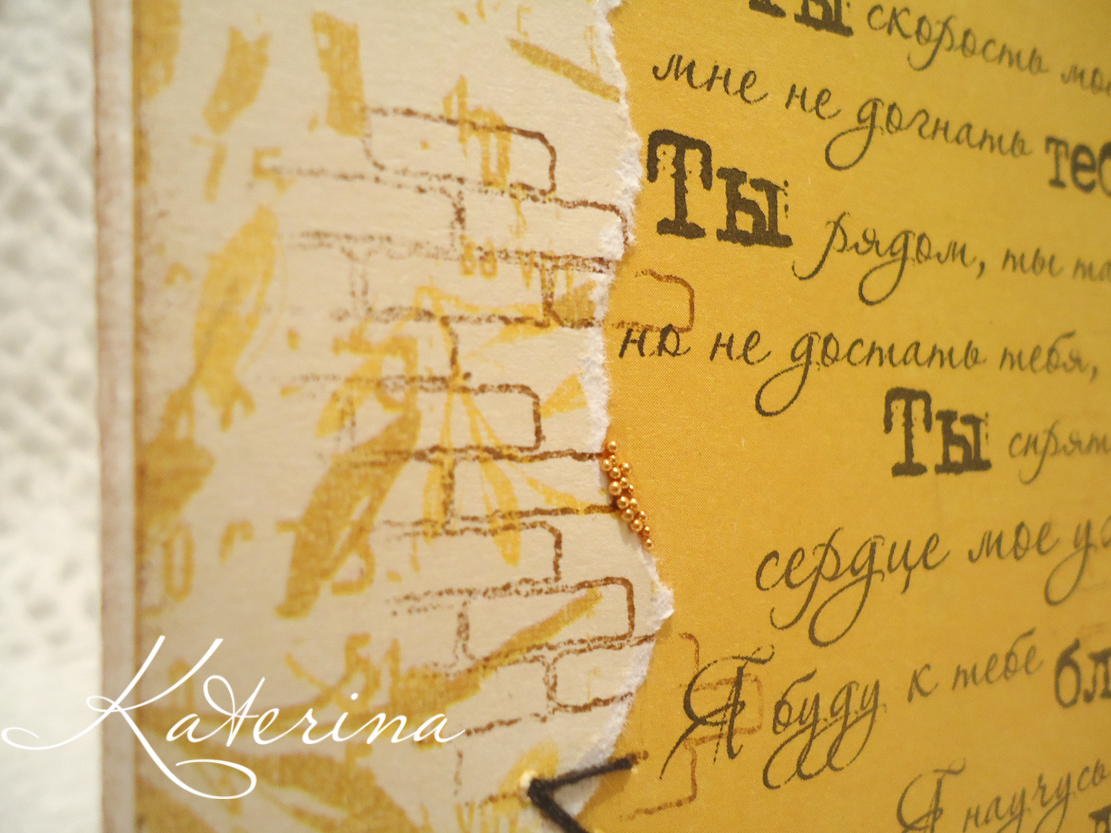 Ты скорость
мне не догнать
Ты рядом, ты
но не достать тебя,
Ты
сердце мое
Я буду к тебе
Я научусь
Katerina